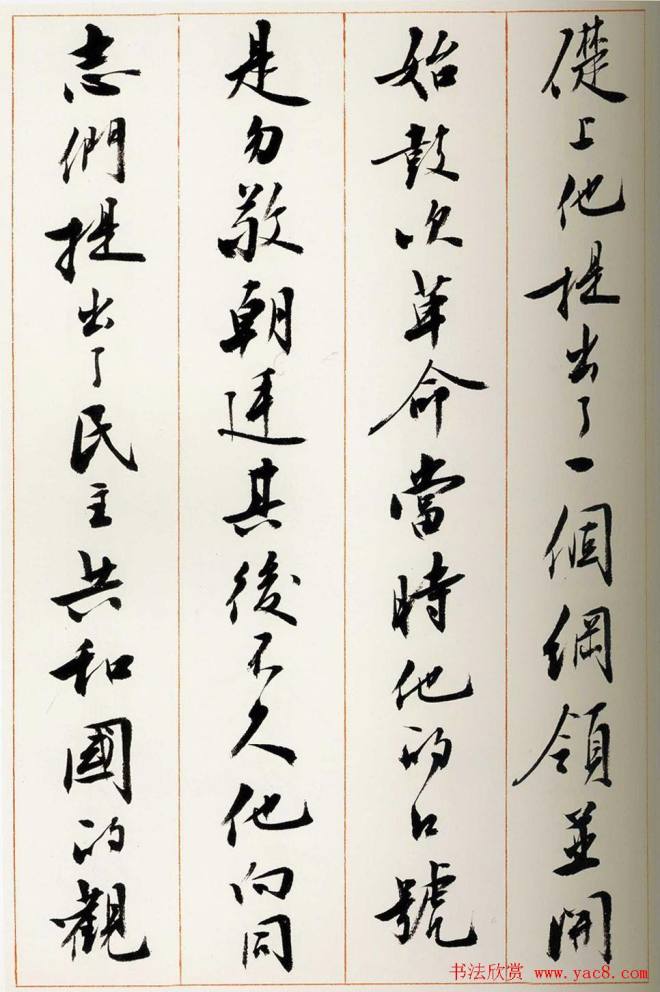 礎上他提出了一個綱領並開
始鼓次革命當時他的口號
是勿敬朝廷其後不久他向同
志們提出了民主共和國的觀
书法欣赏 www.yac8.com